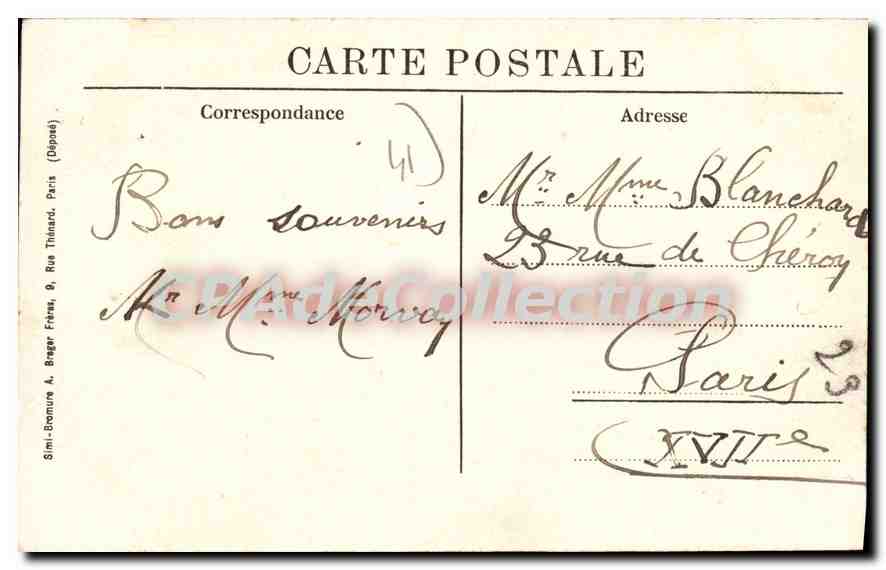 CARTE POSTALE
Correspondance
Adresse
41
Bons souvenirs
Mr Mme Morvay
Mr Mme Blanchard
23 rue de Chéroy
Paris
XVIIe
23
Simi-Bromure A. Breger Frères, 9, Rue Thénard, Paris (Déposé)
CPAdeCollection